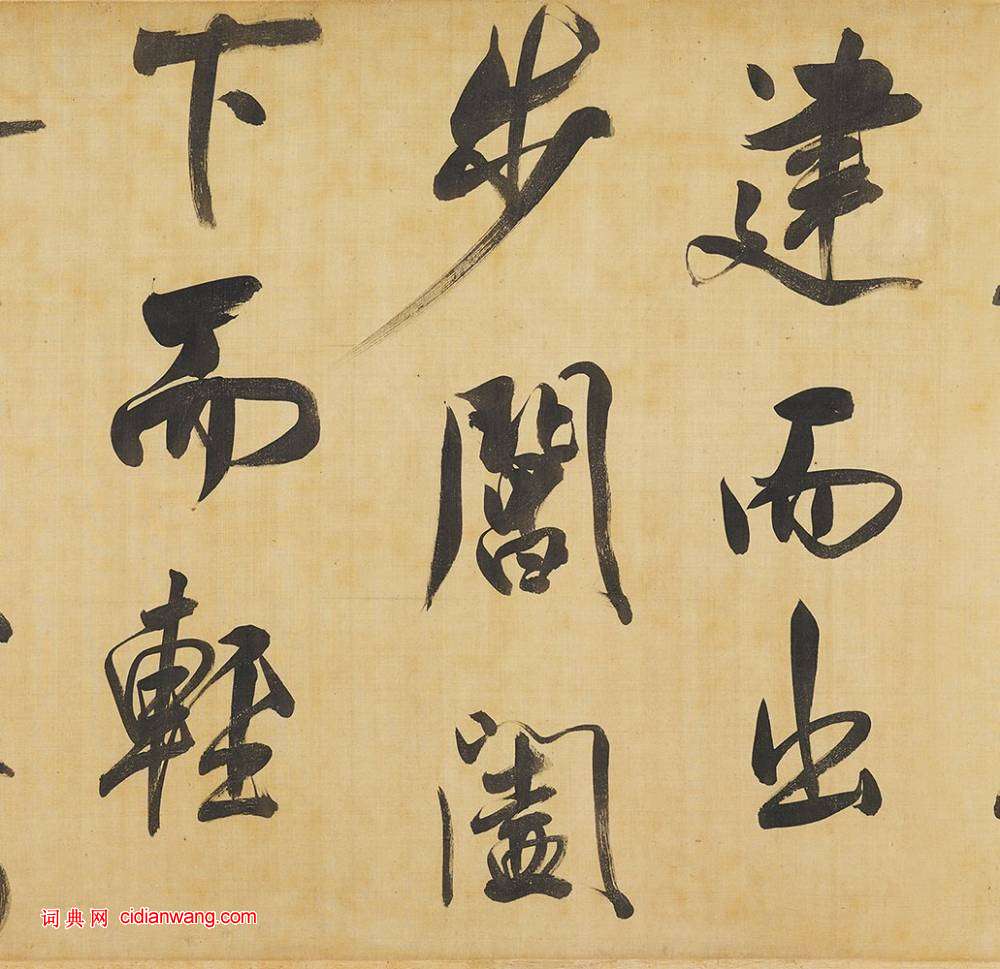 建而出
步閶闔
下而輕
词典网 cidianwang.com